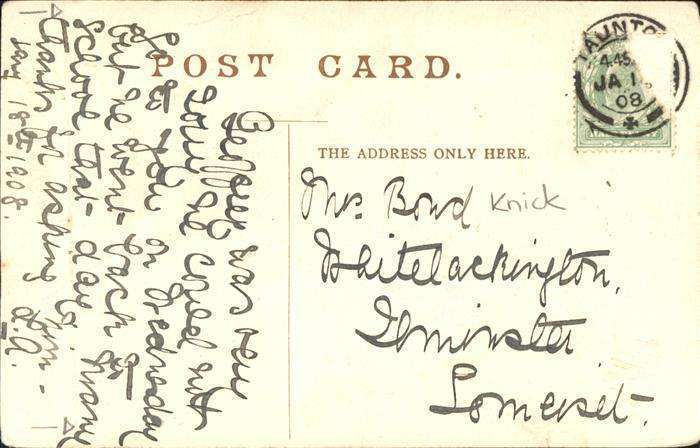 POST CARD.
TAUNTO
4.45
JA 1
08
THE ADDRESS ONLY HERE.
Mrs Bond Knick
Whitelackington,
Ilminster
Somerset.
Geoffrey was very
sorry he could not
go to you on Wednesday
but he went back to
school that day. Many
thanks for asking him -
Jan 18th 1908.